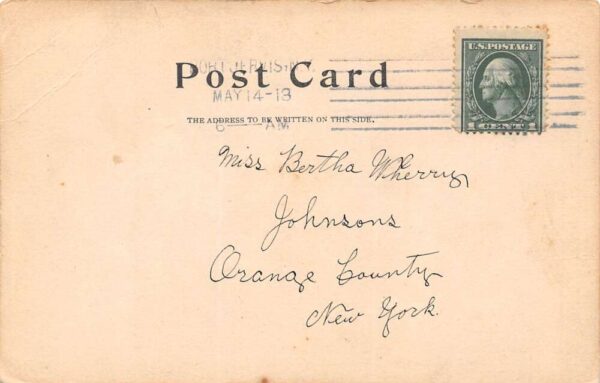 U.S. POSTAGE
1 CENT 1
PORT JERVIS, N.Y.
Post Card
MAY 14-13
THE ADDRESS TO BE WRITTEN ON THIS SIDE.
6 — AM
Miss Bertha Wherry
Johnsons
Orange County
New York.